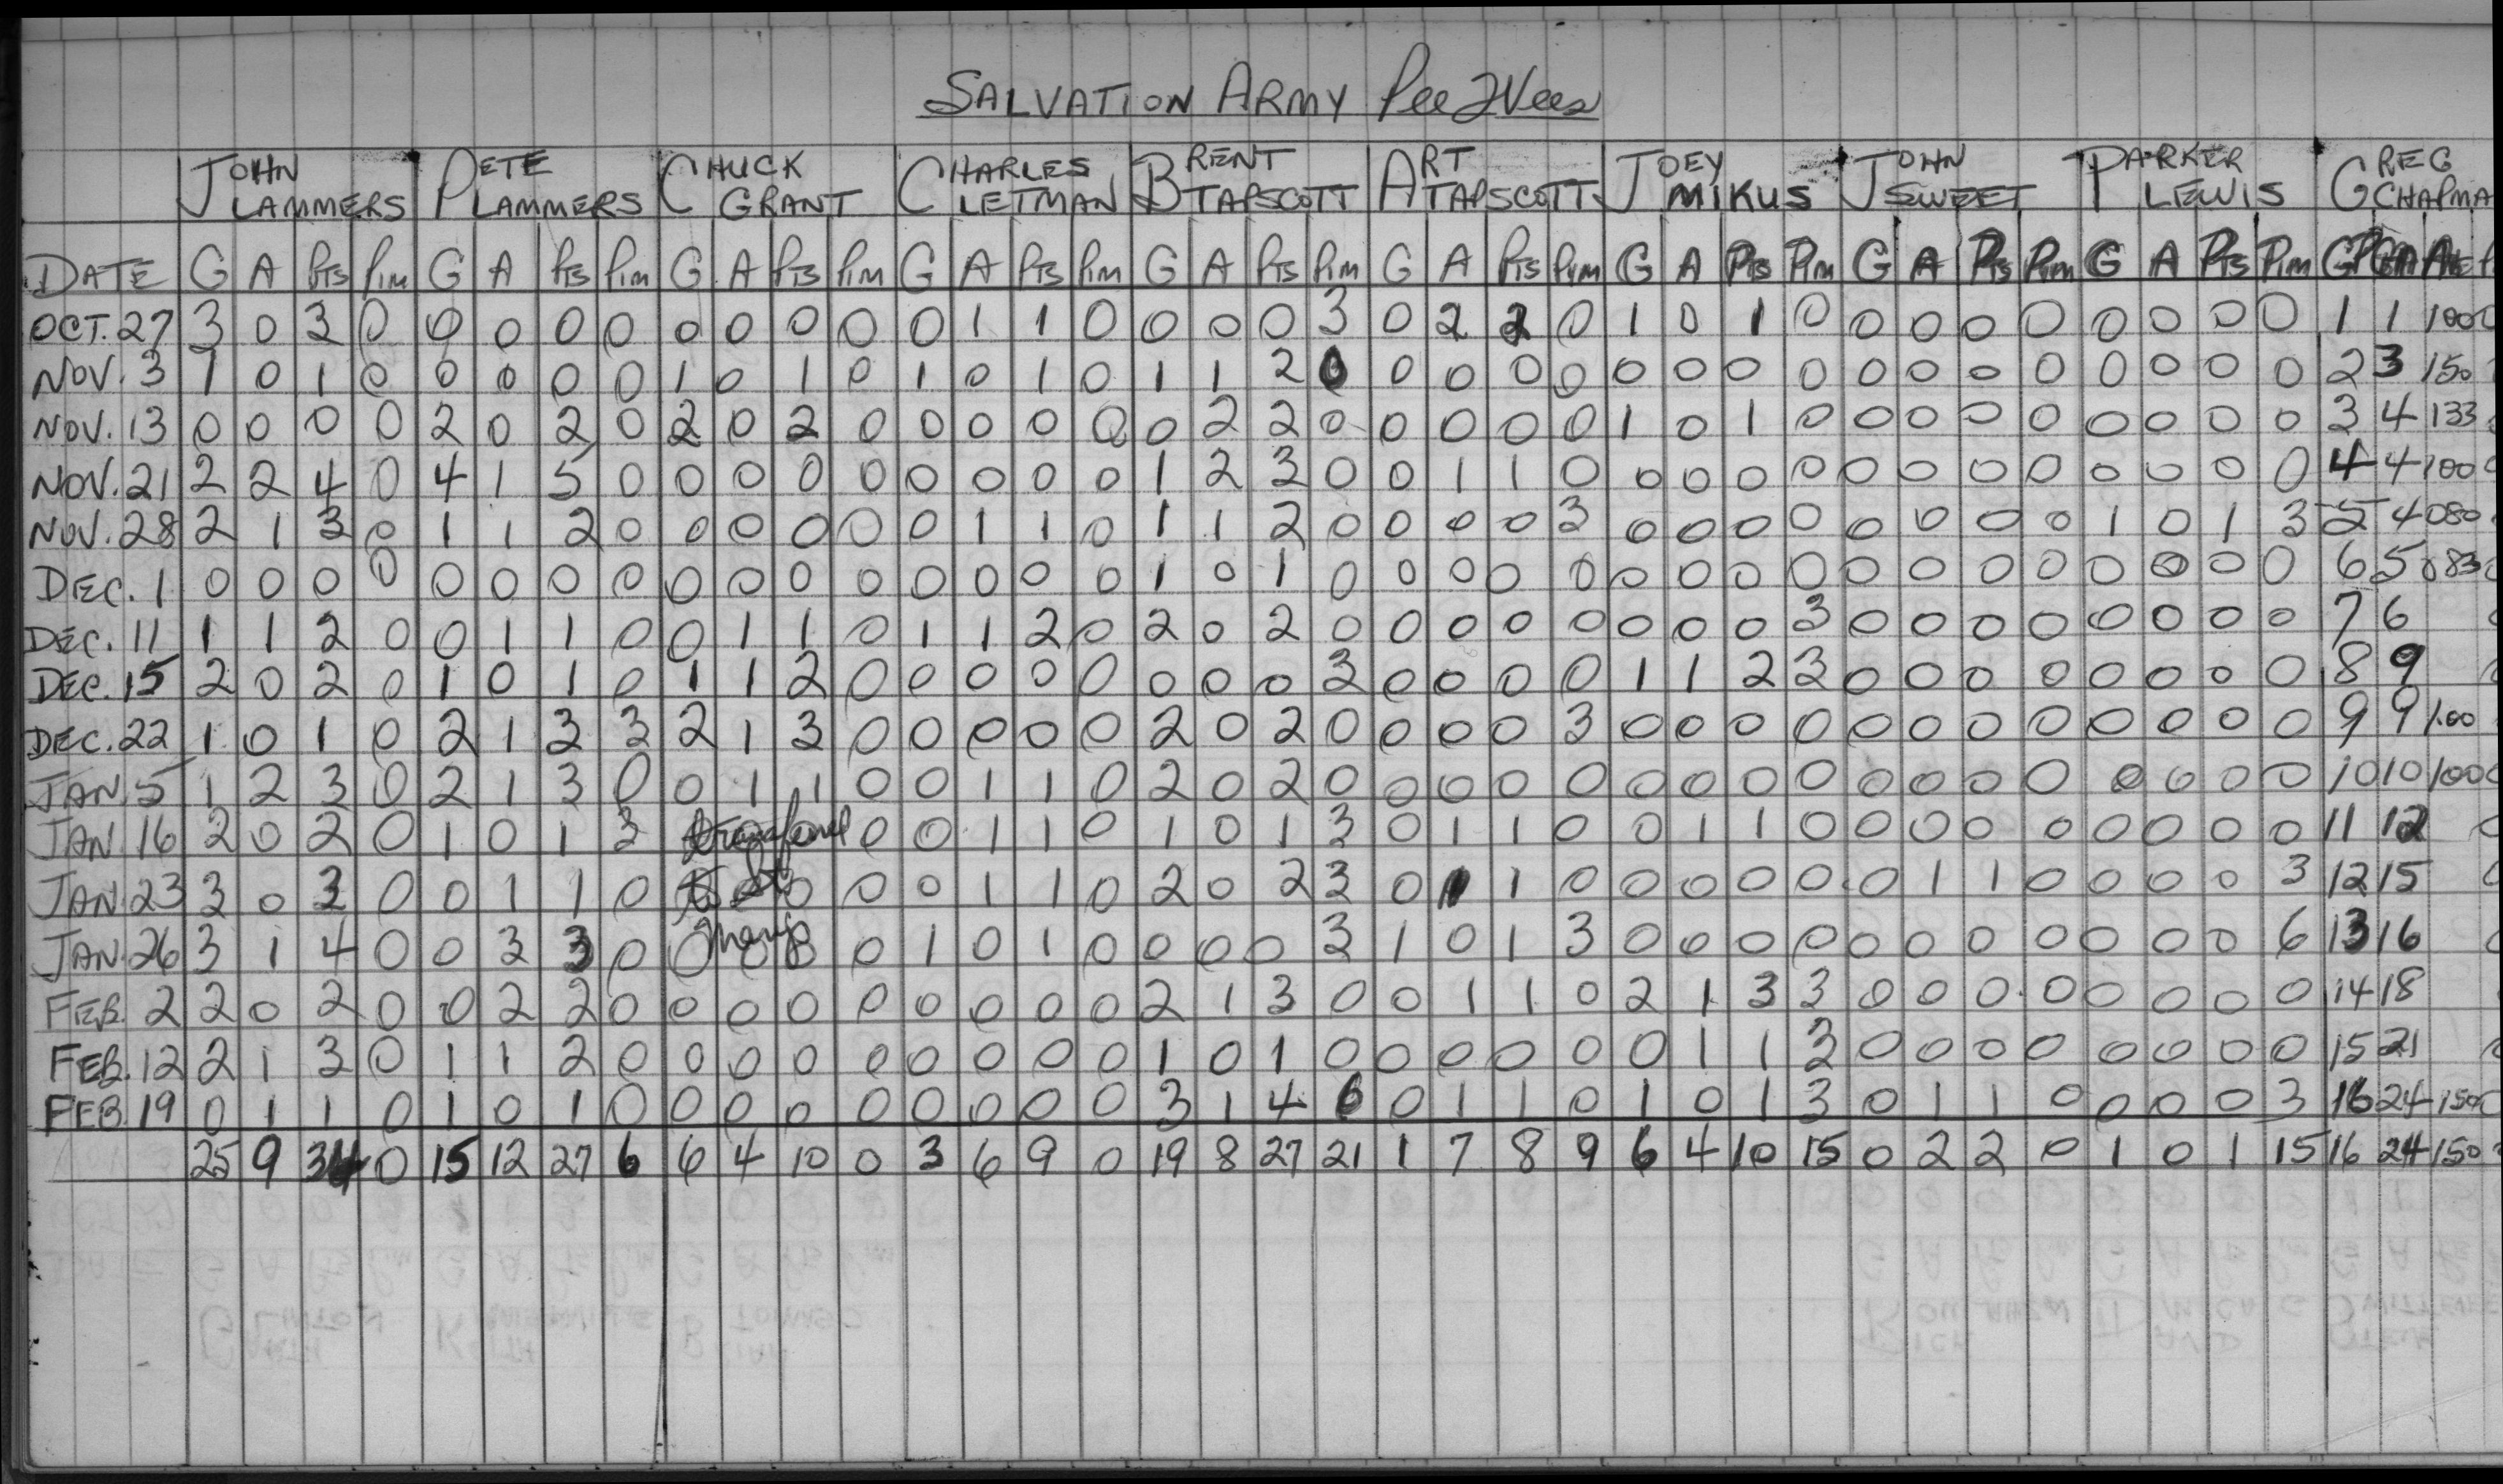 SALVATION ARMY Pee Wees
JOHN LAMMERS PETE LAMMERS CHUCK GRANT CHARLES LETMAN BRENT TAPSCOTT ART TAPSCOTT JOEY MIKUS JOHN SWEET PARKER LEWIS GREG CHAPMA
DATE G A Pts Pim G A Pts Pim G A Pts Pim G A Pts Pim G A Pts Pim G A Pts Pim G A Pts Pim G A Pts Pim G A Pts Pim GP GA Ave
OCT. 27 3 0 3 0 0 0 0 0 0 0 0 0 0 1 1 0 0 0 0 3 0 2 2 0 1 0 1 0 0 0 0 0 0 0 0 0 1 1 100
NOV. 3 1 0 1 0 0 0 0 0 1 0 1 0 1 0 1 0 1 1 2 0 0 0 0 0 0 0 0 0 0 0 0 0 0 0 0 0 2 3 150
NOV. 13 0 0 0 0 2 0 2 0 2 0 2 0 0 0 0 0 0 2 2 0 0 0 0 0 1 0 1 0 0 0 0 0 0 0 0 0 3 4 133
NOV. 21 2 2 4 0 4 1 5 0 0 0 0 0 0 0 0 0 1 2 3 0 0 1 1 0 0 0 0 0 0 0 0 0 0 0 0 0 4 4 100
NOV. 28 2 1 3 0 1 1 2 0 0 0 0 0 0 1 1 0 1 1 2 0 0 0 0 3 0 0 0 0 0 0 0 0 1 0 1 3 5 4 080
DEC. 1 0 0 0 0 0 0 0 0 0 0 0 0 0 0 0 0 1 0 1 0 0 0 0 0 0 0 0 0 0 0 0 0 0 0 0 0 6 5 083
DEC. 11 1 1 2 0 0 1 1 0 0 1 1 0 1 1 2 0 2 0 2 0 0 0 0 0 0 0 0 3 0 0 0 0 0 0 0 0 7 6
DEC. 15 2 0 2 0 1 0 1 0 1 1 2 0 0 0 0 0 0 0 0 3 0 0 0 0 1 1 2 3 0 0 0 0 0 0 0 0 8 9
DEC. 22 1 0 1 0 2 1 3 3 2 1 3 0 0 0 0 0 2 0 2 0 0 0 0 3 0 0 0 0 0 0 0 0 0 0 0 0 9 9 1.00
JAN. 5 1 2 3 0 2 1 3 0 0 1 1 0 0 1 1 0 2 0 2 0 0 0 0 0 0 0 0 0 0 0 0 0 0 0 0 0 10 10 100
JAN. 16 2 0 2 0 1 0 1 3 0 0 1 1 0 1 0 1 3 0 1 1 0 0 1 1 0 0 0 0 0 0 0 0 0 11 12
JAN. 23 3 0 3 0 0 1 1 0 0 0 0 1 1 0 2 0 2 3 0 1 1 0 0 0 0 0 0 1 1 0 0 0 0 3 12 15
JAN. 26 3 1 4 0 0 3 3 0 0 0 0 0 1 0 1 0 0 0 0 3 1 0 1 3 0 0 0 0 0 0 0 0 0 0 0 6 13 16
FEB. 2 2 0 2 0 0 2 2 0 0 0 0 0 0 0 0 0 2 1 3 0 0 1 1 0 2 1 3 3 0 0 0 0 0 0 0 0 14 18
FEB. 12 2 1 3 0 1 1 2 0 0 0 0 0 0 0 0 0 1 0 1 0 0 0 0 0 0 1 1 3 0 0 0 0 0 0 0 0 15 21
FEB. 19 0 1 1 0 1 0 1 0 0 0 0 0 0 0 0 0 3 1 4 6 0 1 1 0 1 0 1 3 0 1 1 0 0 0 0 3 16 24 150
25 9 34 0 15 12 27 6 6 4 10 0 3 6 9 0 19 8 27 21 1 7 8 9 6 4 10 15 0 2 2 0 1 0 1 15 16 24 150